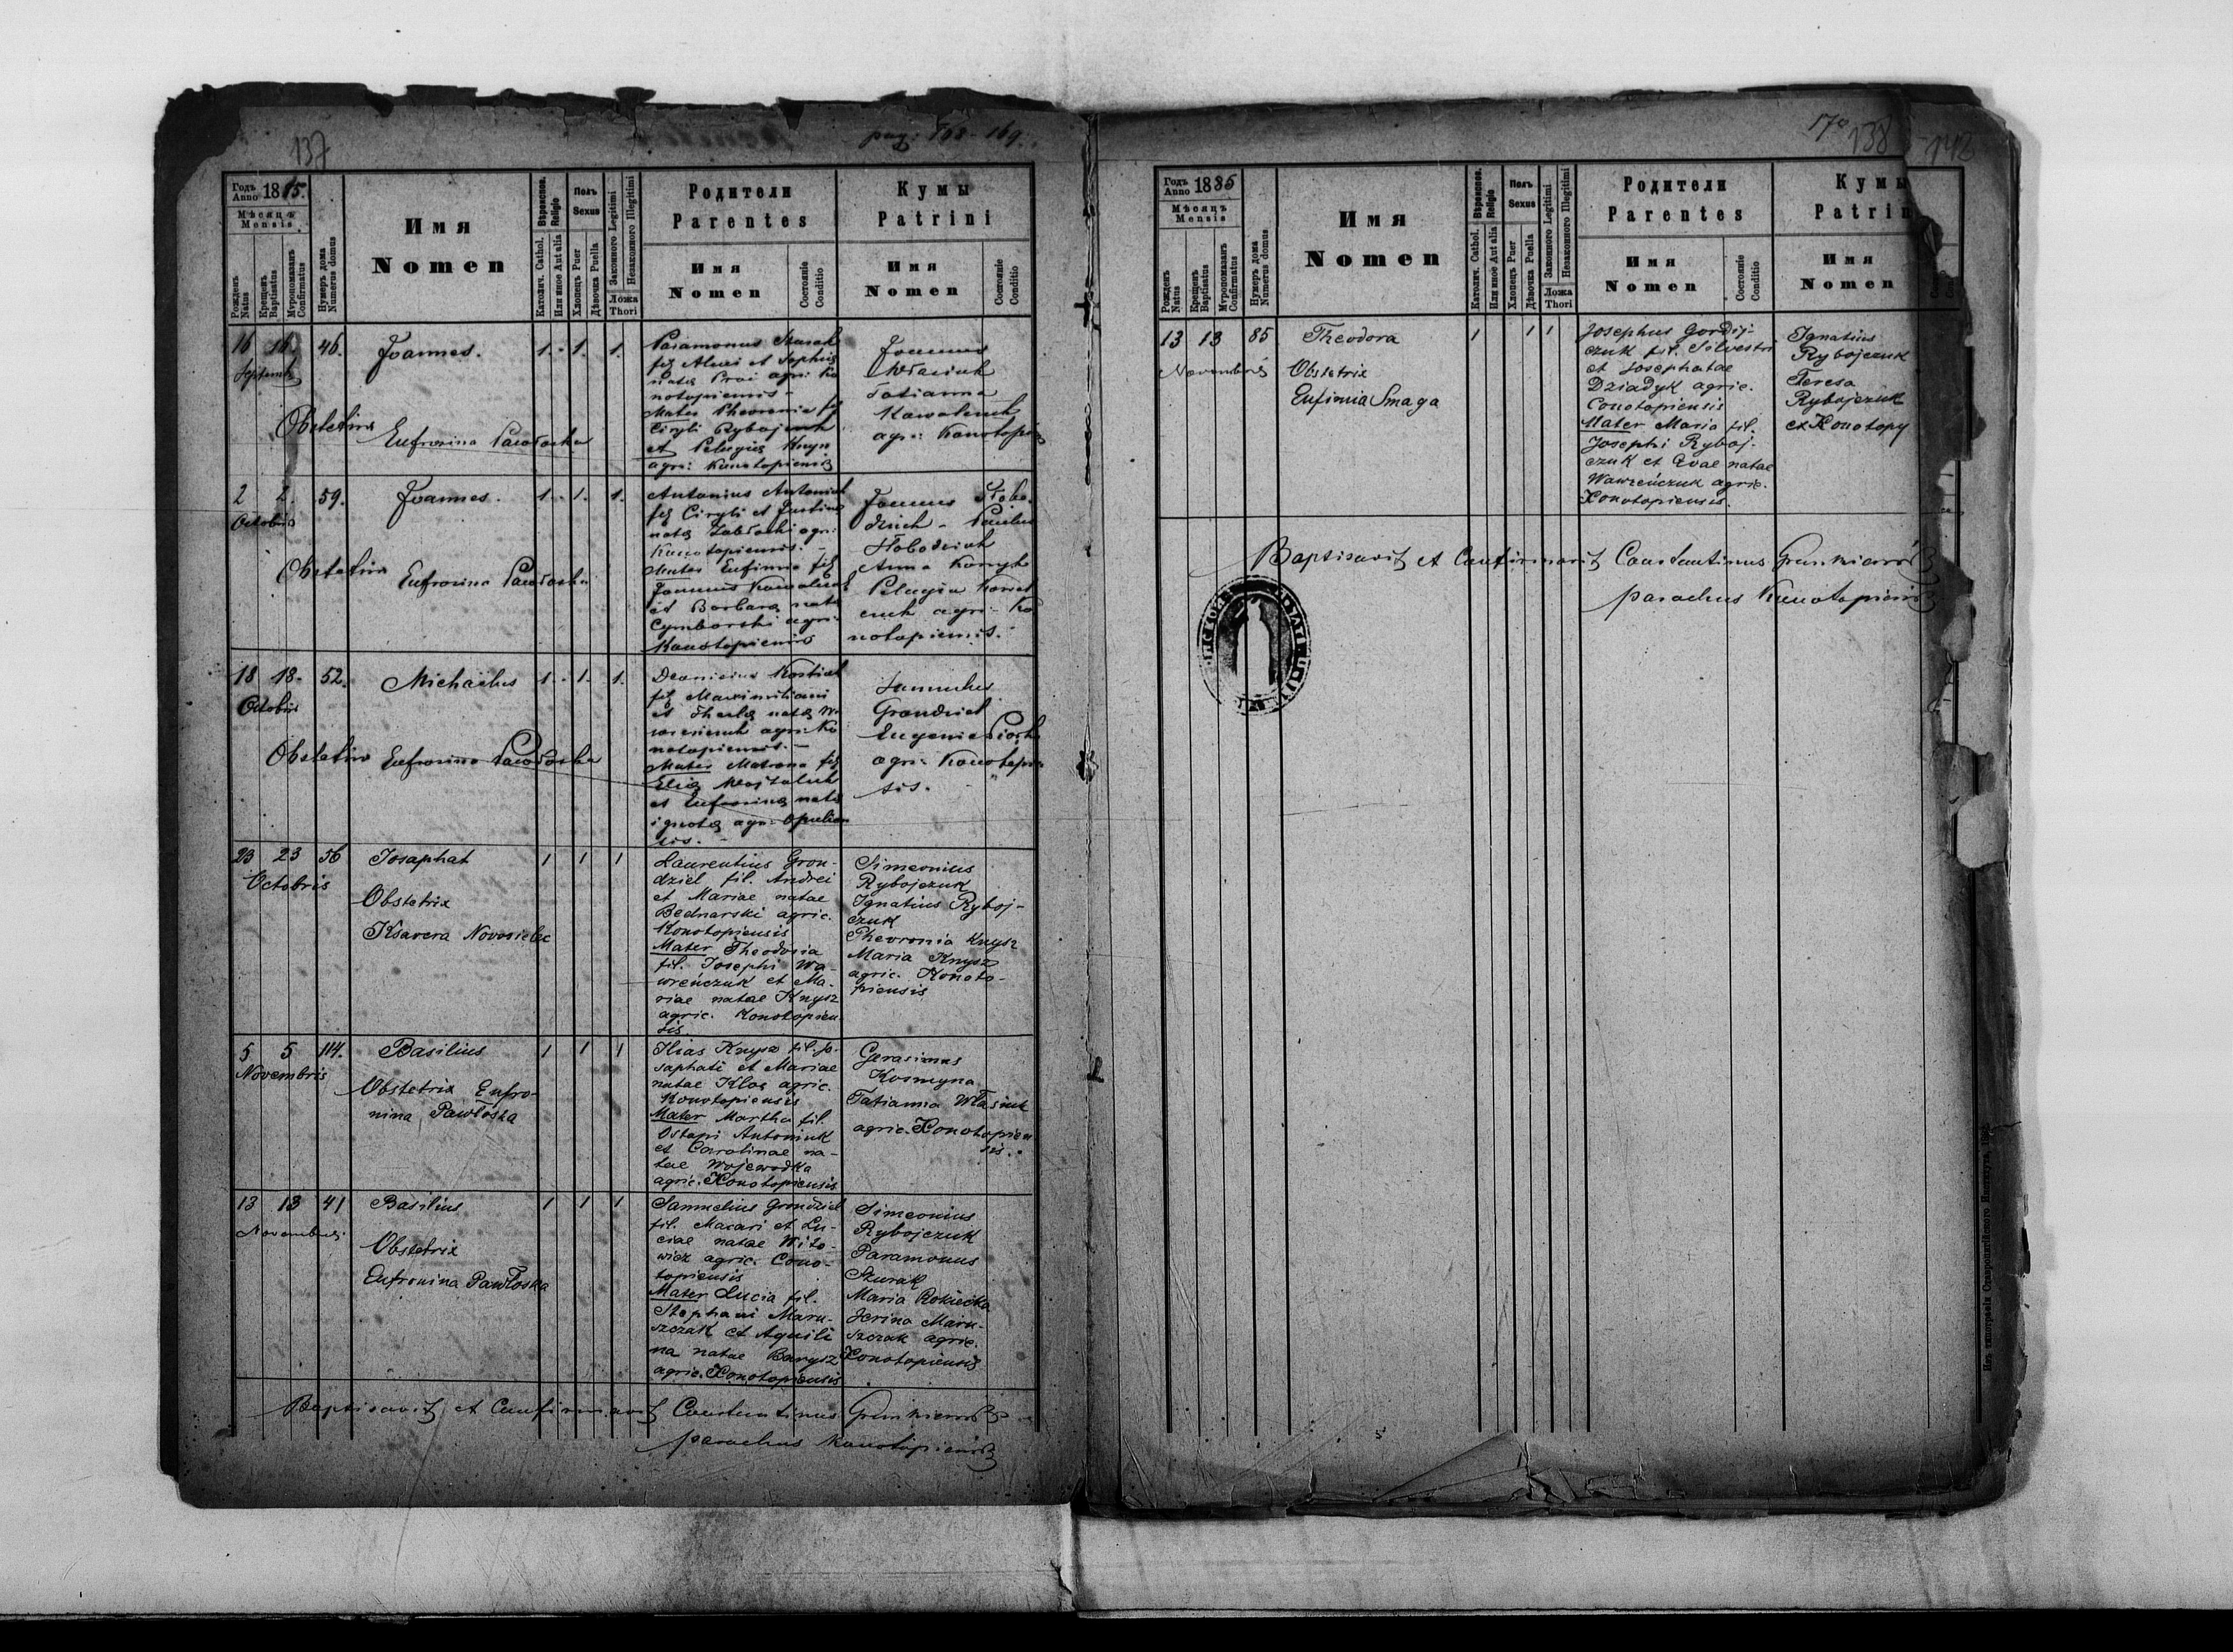 137
pag: 168-169.
Годъ Anno 1885.
Мѣсяцъ
Mensis
Рожденъ Natus
Крещенъ Baptisatus
Мѵропомазанъ Confirmatus
Нумеръ дома Numerus domus
Имя
Nomen
Вѣроиспов. Religio
Католич. Cathol.
Или иное Aut alia
Полъ
Sexus
Хлопецъ Puer
Дѣвочка Puella
Законного Legitimi
Незаконного Illegitimi
Ложа
Thori
Родители
Parentes
Имя
Nomen
Состояніе
Conditio
Кумы
Patrini
Имя
Nomen
Состояніе
Conditio
16 16. 46. Joannes. 1. - 1. 1.
Septemb
Obstetrix Eufrosina Pawłoska
Paramonus Szurak
fil Alexi et Sophiæ
natæ Proi agri: Ko
notopiensis -
Mater Phevronia fil
Ciryli Rybojczuk
et Pelagiæ Knysz
agri: Konotopiensis
Joannes
Własiuk
Tatianna
Kowalczuk
agri: Konotopien
2 2. 59. Joannes. 1. - 1. 1.
Octobris
Obstetrix Eufrosina Pawłoska
Antonius Antoniuk
fil Ciryli et Justinæ
natæ Zabłocki agri:
Konotopiensis. -
Mater Eufimia fil
Joannis Kowalczuk
et Barbaræ natæ
Cymborski agri:
Konotopiensis
Joannes Słobo
dziuk - Paulus
Słobodziuk
Anna Kornyk
Pelagia
agri: Ko
notopiensis.
18 18. 52. Michaëlus 1. - 1. 1.
Octobris
Obstetrix Eufrosina Pawłoska
Deonisius Kostiuk
fil Maximiliani
et Theclæ natæ Wa
agri: Ko
notopiensis. -
Mater Matrona fil
Eliæ
et Eufrosinæ natæ
ignotæ agri: Opulien
sis. -
Samuelus
Grondziel
Eugenia
agri: Konotopien
sis.
23 23 56 Josaphat 1 1 1
Octobris
Obstetrix
Ksavera Novosielec
Laurentius Gron-
dziel fil. Andrei
et Mariae natae
Bednarski agric.
Konotopiensis
Mater Theodosia
fil. Josephi Wa-
wreńczuk et Ma-
riae natae Knysz
agric. Konotopien
sis.
Simeonius
Rybojczuk
Ignatius Ryboj-
czuk
Phevronia Knysz
Maria Knysz
agric. Konoto-
piensis
5 5 114. Basilius 1 1 1
Novembris
Obstetrix Eufro-
nina Pawłoska
Ilias Knysz fil. Jo-
saphati et Mariae
natae Kloc agric.
Konotopiensis
Mater Martha fil.
Ostapi Antoniuk
et Carolinae na-
tae Wojewodka
agric. Konotopiensis
Gerasimus
Kosmyna
Tatianna Własiuk
agric. Konotopien
sis.
13 13 41 Basilius 1 1 1
Novembris
Obstetrix
Eufronina Pawłoska
Samuelius Grondziel
fil. Macari et Lu-
ciae natae Wito-
wicz agric. Cono-
topiensis
Mater Lucia fil.
Stephani Maru-
szczak et Aquili
na natae Barysz
agric. Konotopiensis
Simeonius
Rybojczuk
Paramonus
Szurak
Maria Rokiecka
Jerina Maru-
szczak agric.
Konotopiensis
Baptisavit et Confirmavit Constantinus
parochus Konotopiensis
170
138
142
Годъ Anno 1885
Мѣсяцъ
Mensis
Рожденъ Natus
Крещенъ Baptisatus
Мѵропомазанъ Confirmatus
Нумеръ дома Numerus domus
Имя
Nomen
Вѣроиспов. Religio
Католич. Cathol.
Или иное Aut alia
Полъ
Sexus
Хлопецъ Puer
Дѣвочка Puella
Законного Legitimi
Незаконного Illegitimi
Ложа
Thori
Родители
Parentes
Имя
Nomen
Состояніе
Conditio
Кумы
Patrin
Имя
Nomen
13 13 85 Theodora 1 1 1
Novembris
Obstetrix
Eufimia Smaga
Josephus Gordij-
czuk fil. Silvestri
et Josephatae
Dziadyk agric.
Conotopiensis
Mater Maria fil.
Josephi Ryboj-
czuk et Evae natae
Wawreńczuk agric.
Konotopiensis.
Ignatius
Rybojczuk
Teresa
Rybojczuk
ex Konotopy
Baptisavit et Confirmavit Constantinus
parochus Konotopiensis
Изъ типографіи Ставропигійского Института,